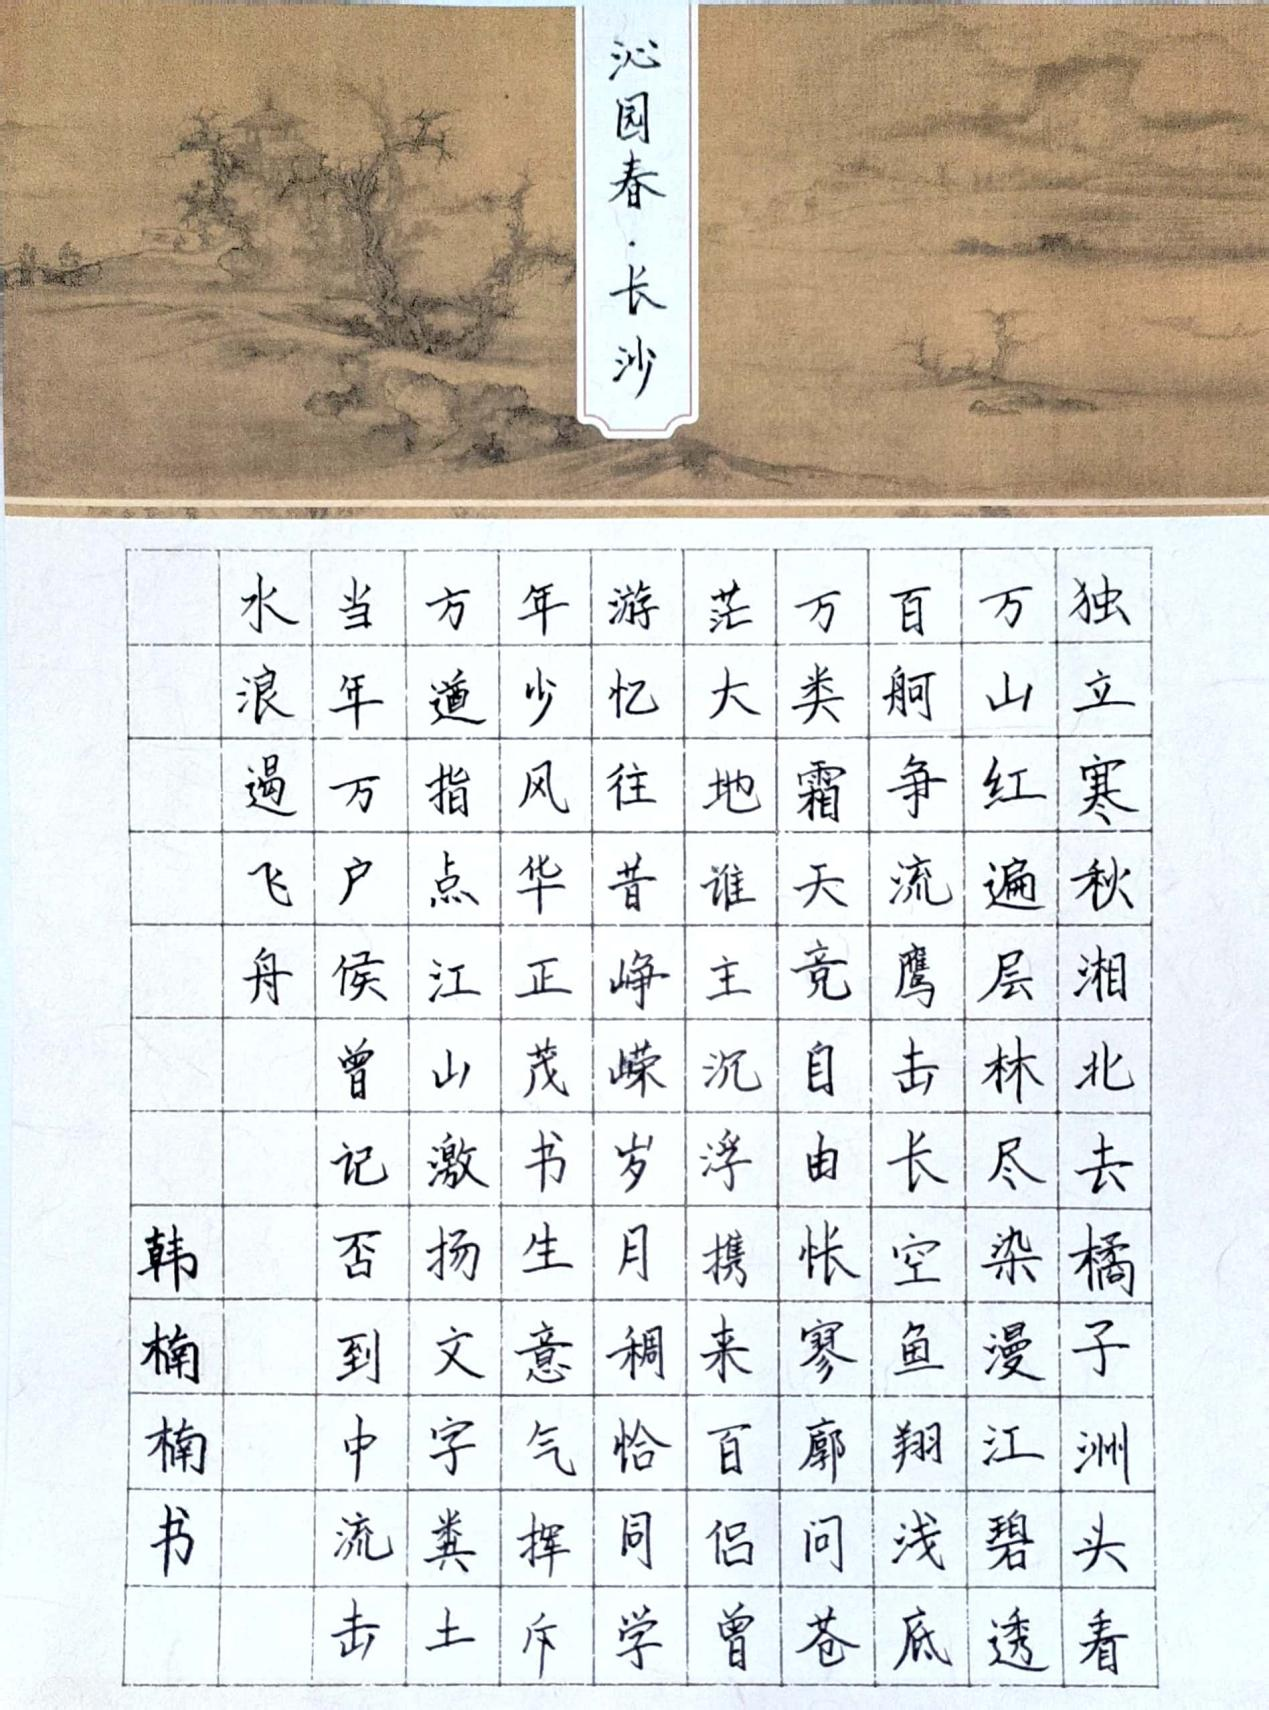 沁园春·长沙
独立寒秋湘北去橘子洲头看
万山红遍层林尽染漫江碧透
百舸争流鹰击长空鱼翔浅底
万类霜天竞自由怅寥廓问苍
茫大地谁主沉浮携来百侣曾
游忆往昔峥嵘岁月稠恰同学
年少风华正茂书生意气挥斥
方遒指点江山激扬文字粪土
当年万户侯曾记否到中流击
水浪遏飞舟
韩楠楠书